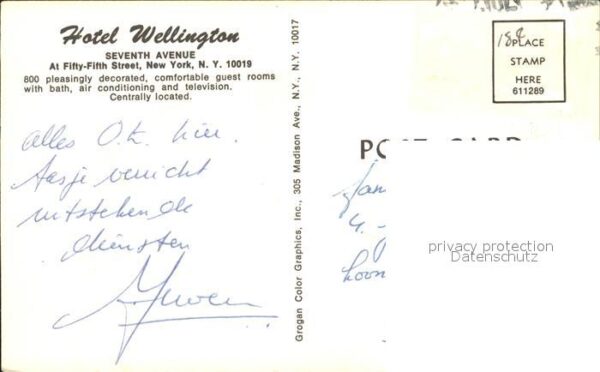 Hotel Wellington
SEVENTH AVENUE
At Fifty-Fifth Street, New York, N. Y. 10019
800 pleasingly decorated, comfortable guest rooms
with bath, air conditioning and television.
Centrally located.
alles O.K. hier.
Aasje verricht
uitstekende
diensten
Grogan Color Graphics, Inc., 305 Madison Ave., N.Y., N.Y. 10017
18¢
PLACE
STAMP
HERE
611289
POST CARD
Jan
4.-
hoorn
privacy protection
Datenschutz